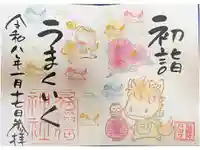 初詣
うまくいく
神社
令和八年一月十七日参拝